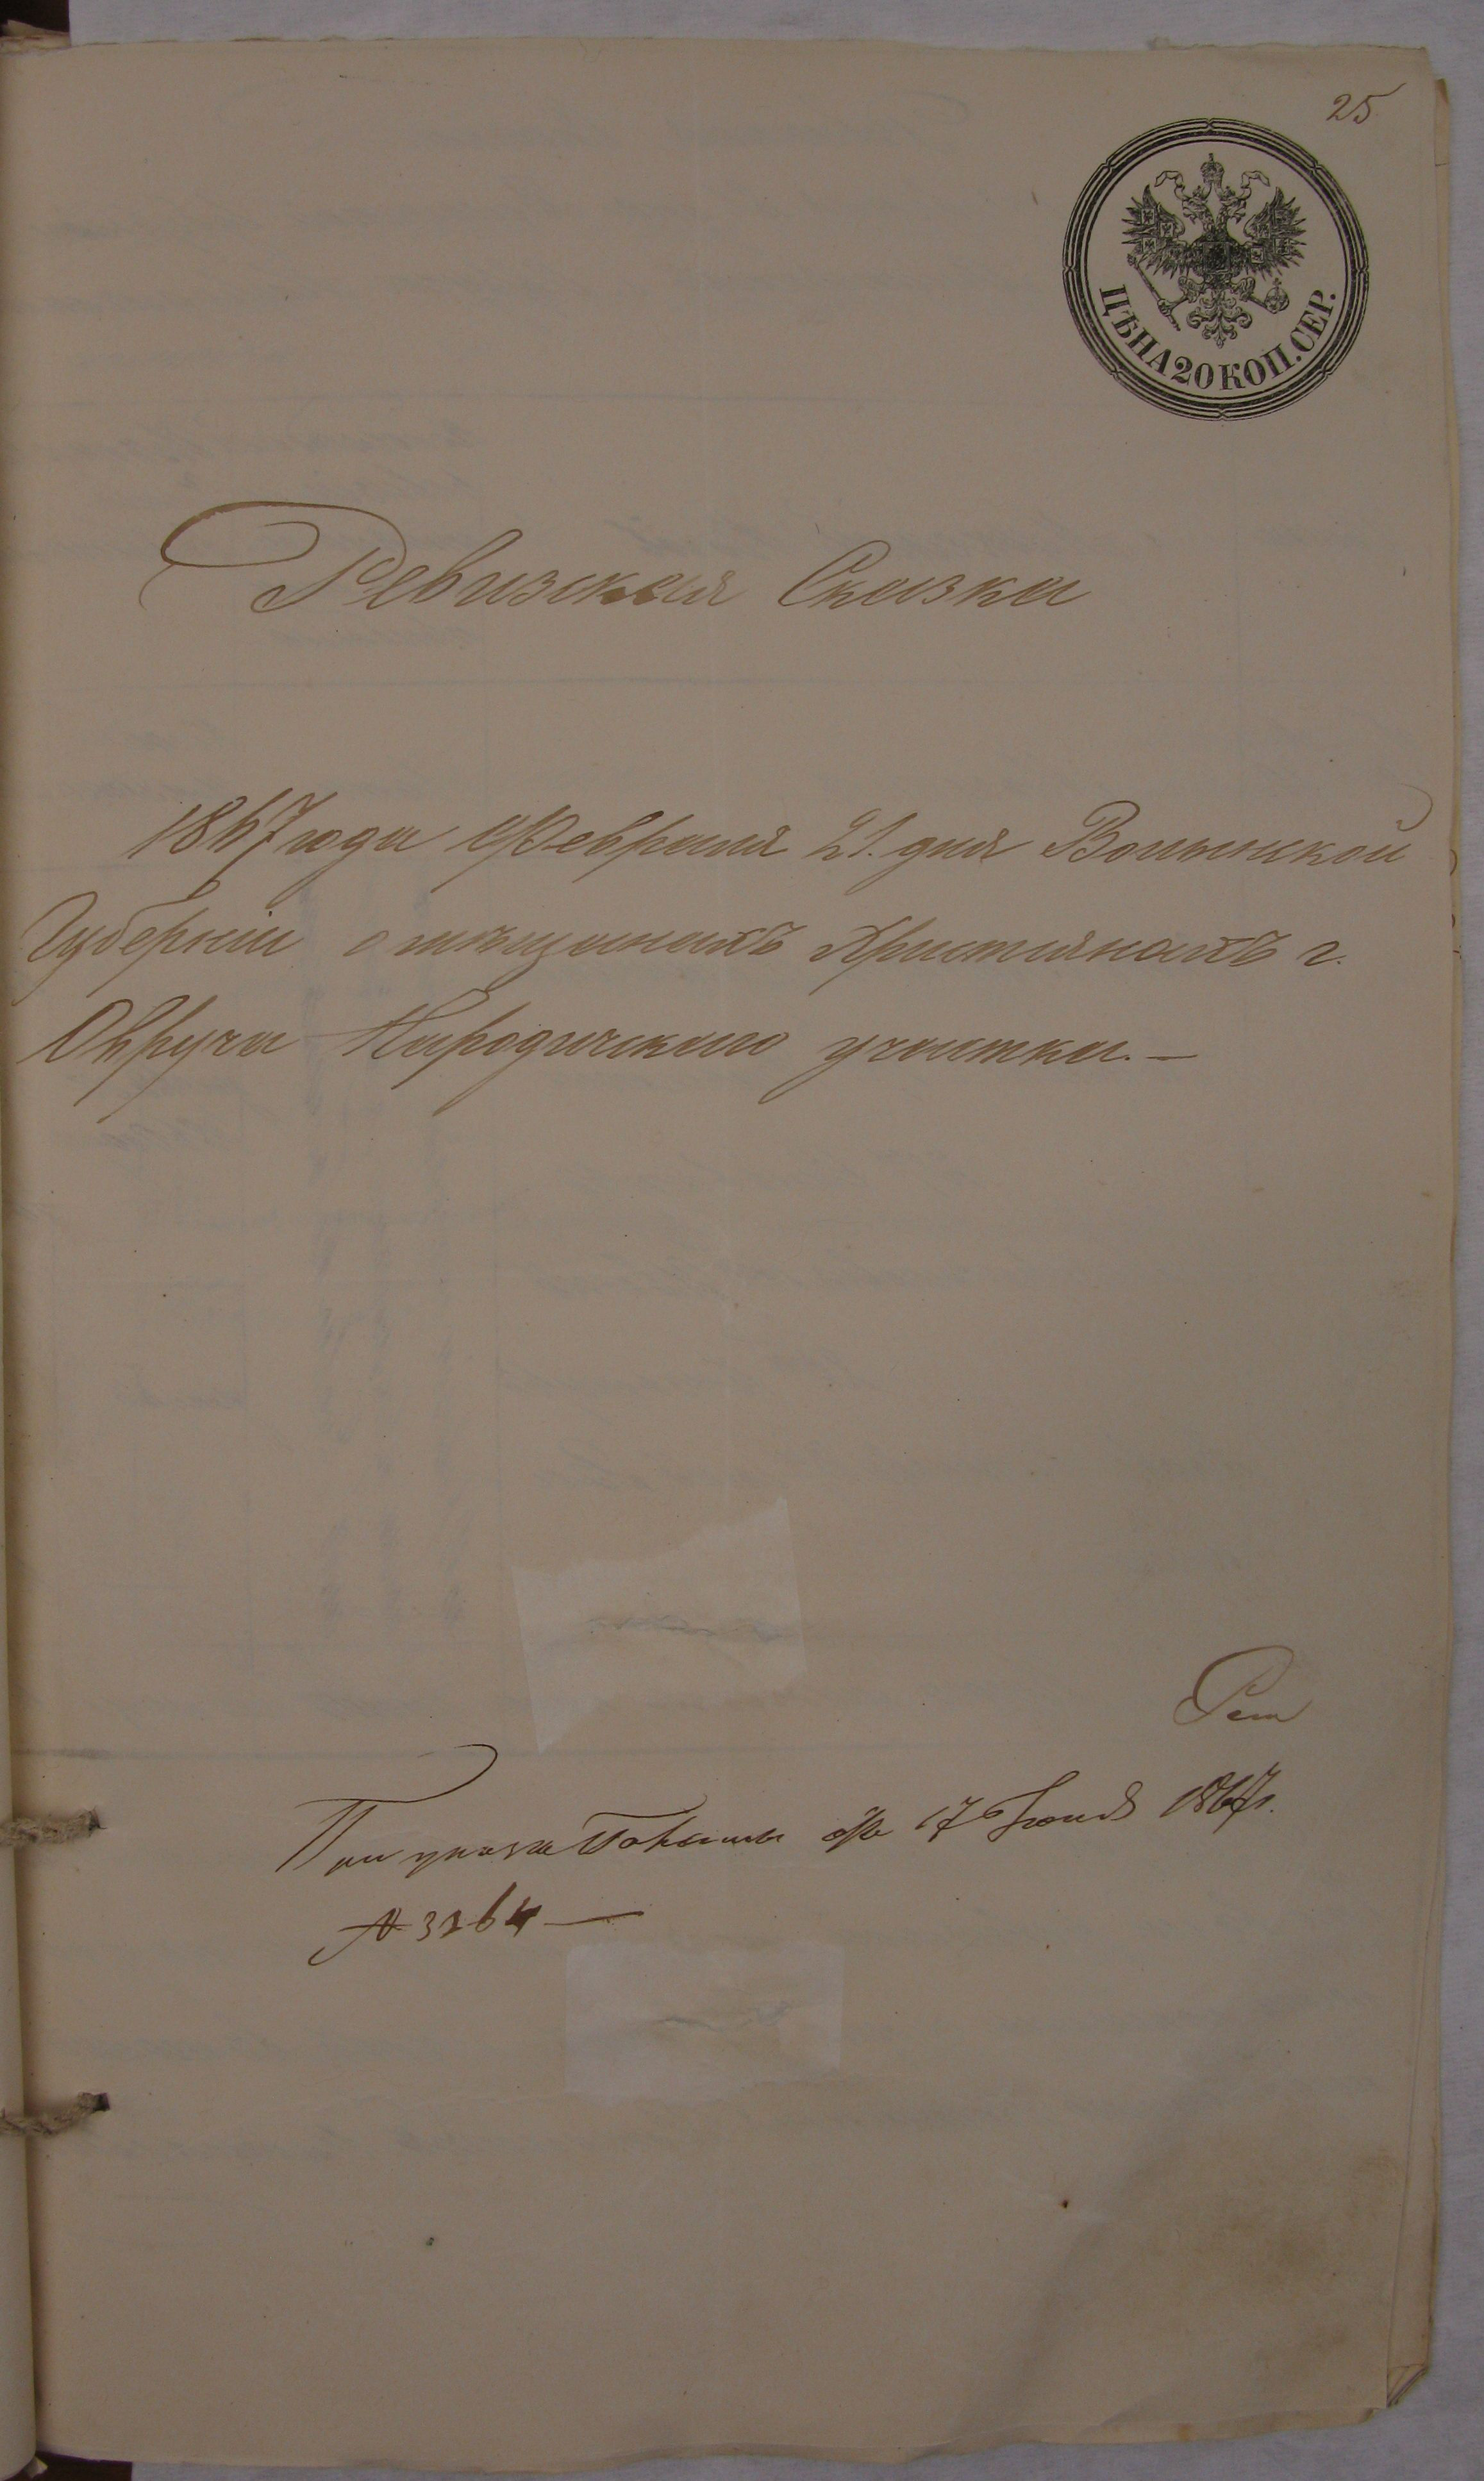 25
ЦѢНА 20 КОП. СЕР.
Ревизская Сказка
1867 года Февраля 21. дня Волынской
Губерніи о мѣщанахъ Христіянахъ г.
Овруча Народичскаго участка. —
При указѣ Палаты отъ 17 Іюня 1867 г.
№ 3164 —